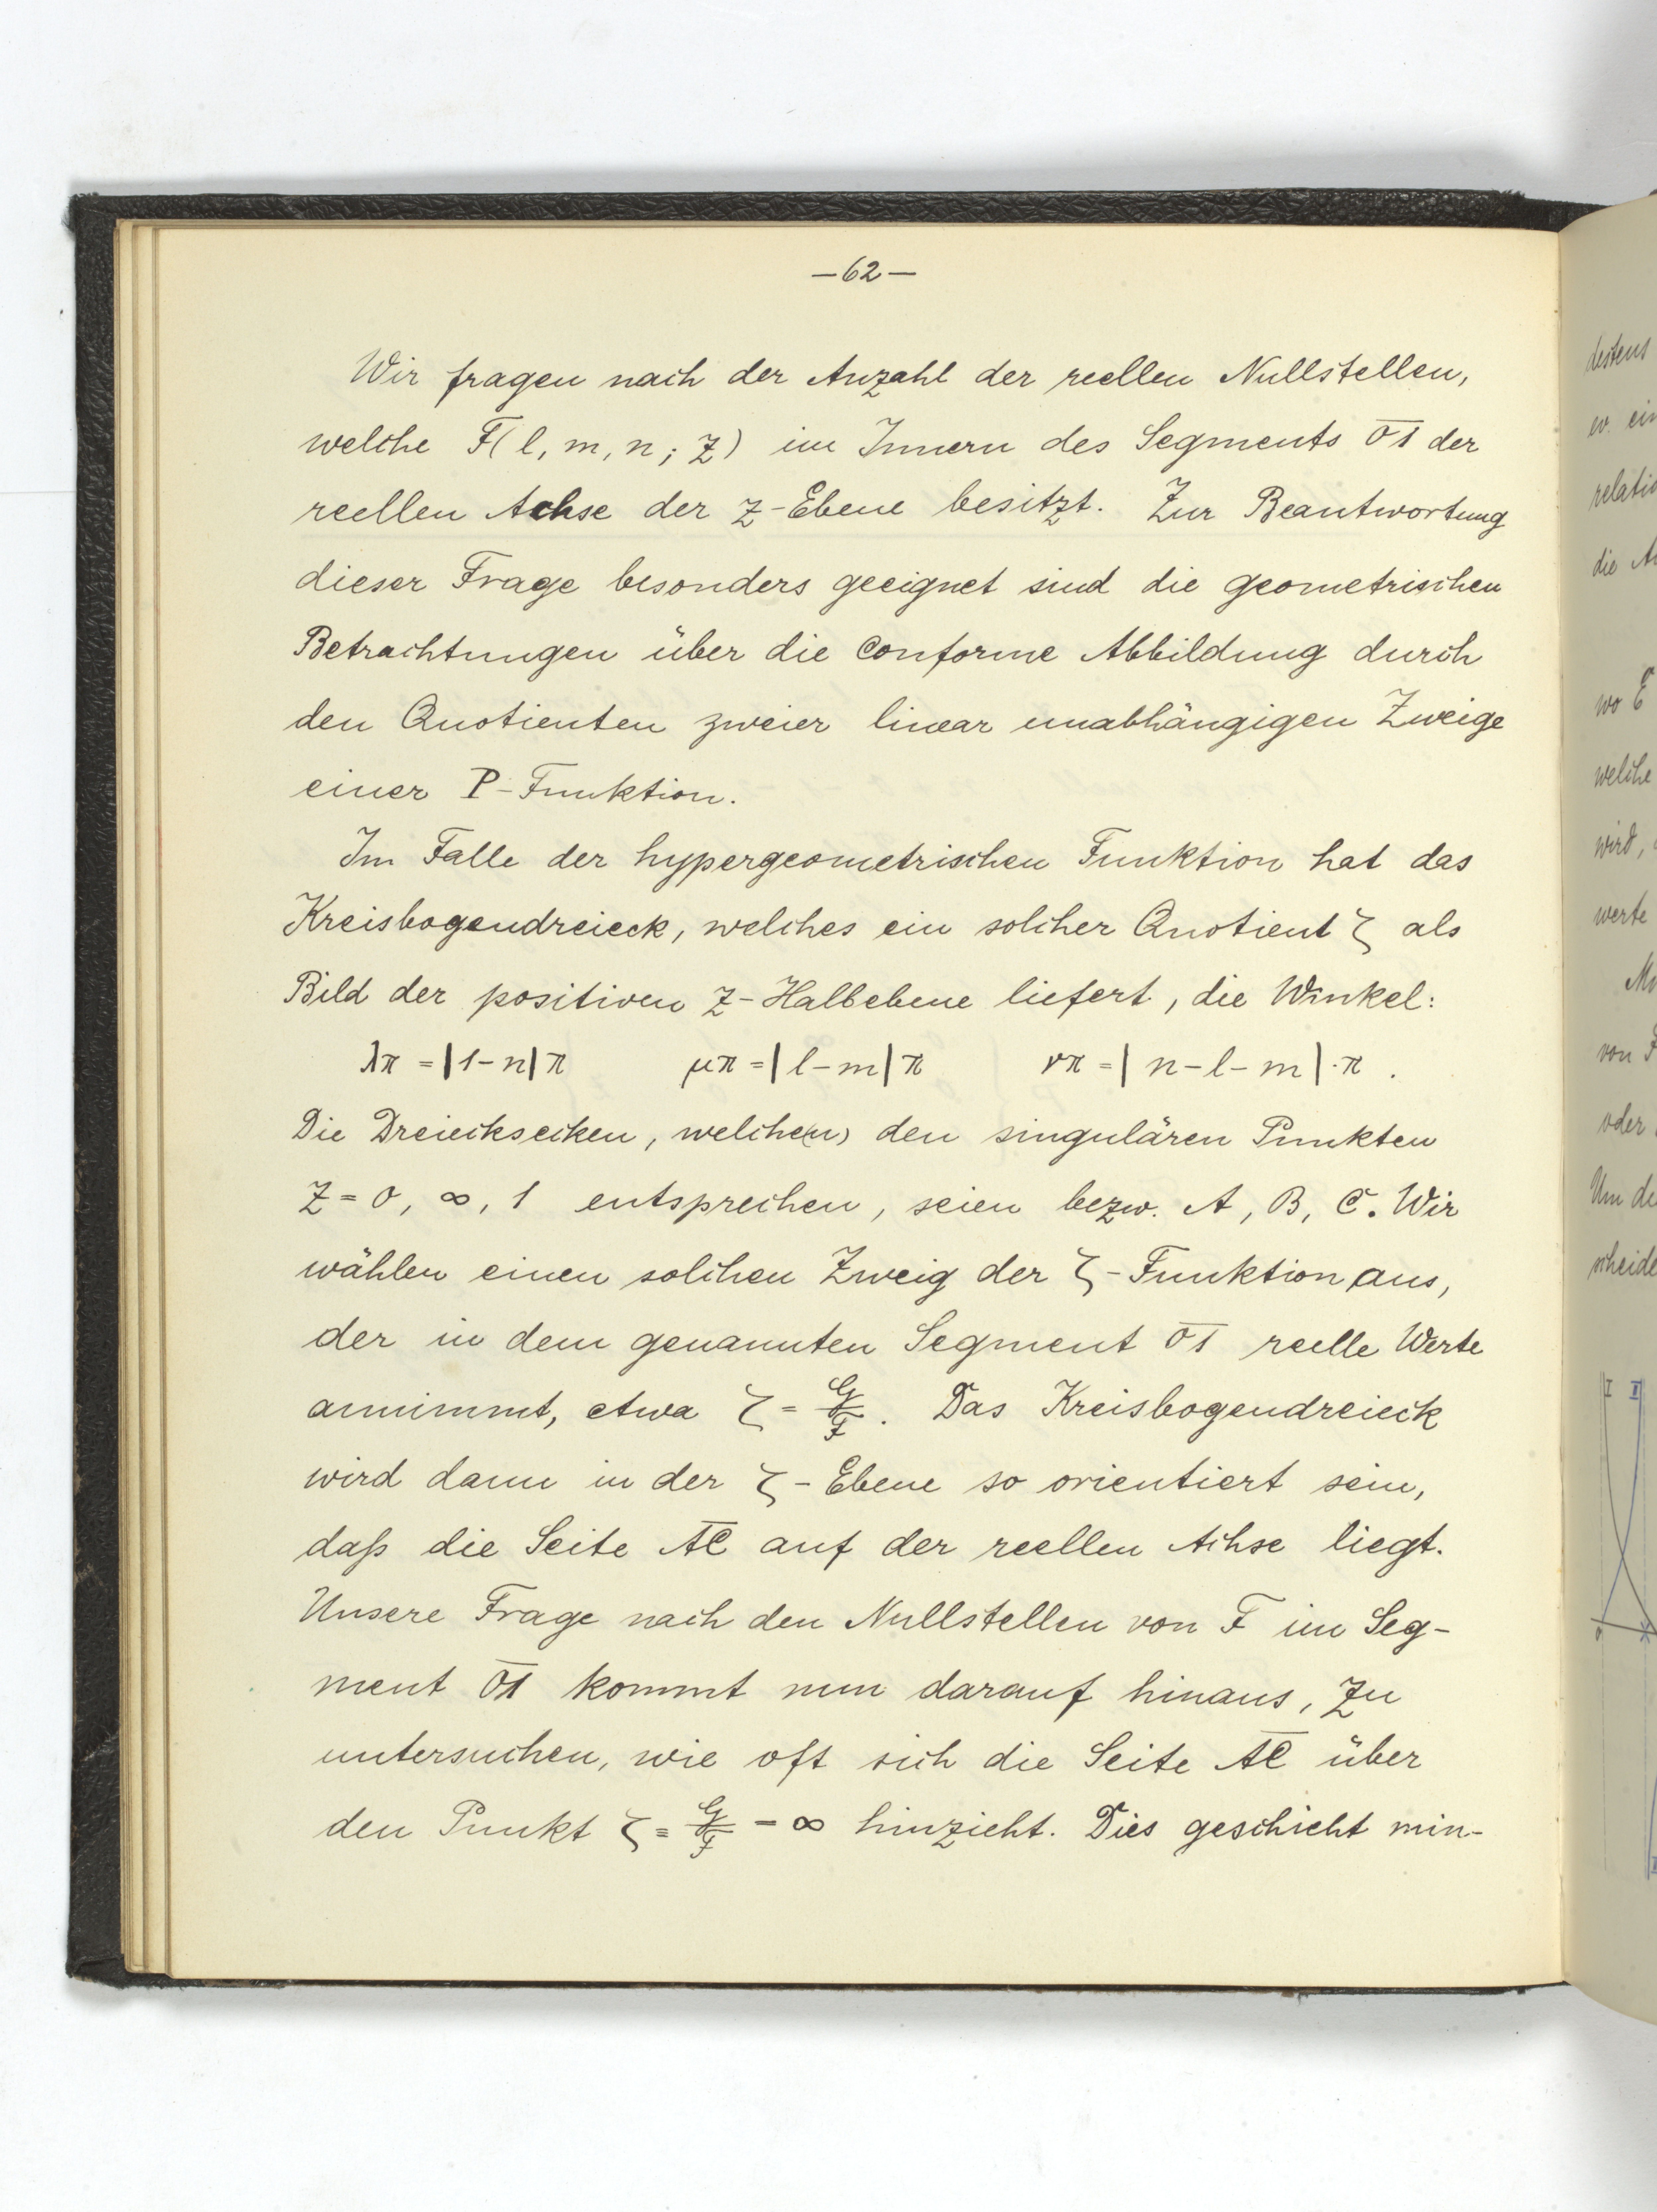 –62–
Wir fragen nach der Anzahl der reellen Nullstellen,
welche F(l, m, n; z) im Innern des Segments 0̅1̅ der
reellen Achse der z-Ebene besitzt. Zur Beantwortung
dieser Frage besonders geeignet sind die geometrischen
Betrachtungen über die conforme Abbildung durch
den Quotienten zweier linear unabhängigen Zweige
einer P-Funktion.
Im Falle der hypergeometrischen Funktion hat das
Kreisbogendreieck, welches ein solcher Quotient ζ als
Bild der positiven z-Halbebene liefert, die Winkel:
λπ = |1-n|π μπ = |l-m|π νπ = |n-l-m|·π .
Die Dreiecksecken, welche(n) den singulären Punkten
z = 0, ∞, 1 entsprechen, seien bezw. A, B, C. Wir
wählen einen solchen Zweig der ζ-Funktion aus,
der in dem genannten Segment 0̅1̅ reelle Werte
annimmt, etwa ζ = G/F. Das Kreisbogendreieck
wird dann in der ζ-Ebene so orientiert sein,
daß die Seite A̅C̅ auf der reellen Achse liegt.
Unsere Frage nach den Nullstellen von F im Seg-
ment 0̅1̅ kommt nun darauf hinaus, zu
untersuchen, wie oft sich die Seite A̅C̅ über
den Punkt ζ = G/F = ∞ hinzieht. Dies geschieht min-
destens
ein
relatio
die
wo E
welche
wird,
werte
von F
oder
Um di
scheide
I II